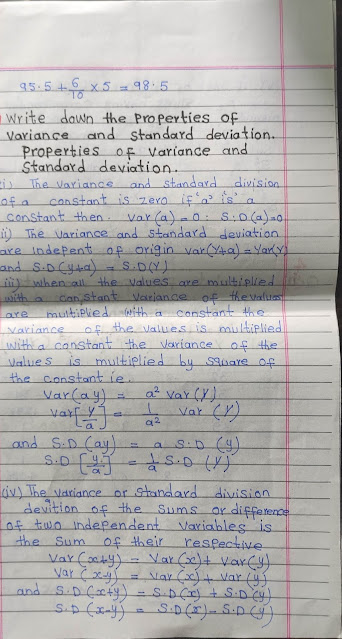 95.5 + 6/10 x 5 = 98.5
Write down the Properties of
Variance and Standard deviation.
Properties of Variance and
Standard deviation.
i) The Variance and Standard division
of a constant is zero if 'a' is a
constant then. Var(a)=0: S:D(a)=0
ii) The Variance and Standard deviation
are indepent of origin var(Y+a)=Var(Y)
and S.D(y+a) = S.D(Y)
iii) when all the values are multiplied
with a constant Variance of the values
are multiplied with a constant the
variance of the values is multiplied
with a constant the variance of the
values is multiplied by square of
the constant ie.
Var(ay) = a² var(Y)
Var[Y/a] = 1/a² var(Y)
and S.D(ay) = a S.D(y)
S.D[y/a] = 1/a S.D(Y)
(iv) The variance or Standard division
devition of the Sums or difference
of two independent variables is
the Sum of their respective
Var(x+y) = Var(x)+ Var(y)
Var(x-y) = Var(x)+ var(y)
and S.D(x+y) = S.D(x) + S.D(y)
S.D(x-y) = S.D(x)- S.D(y)